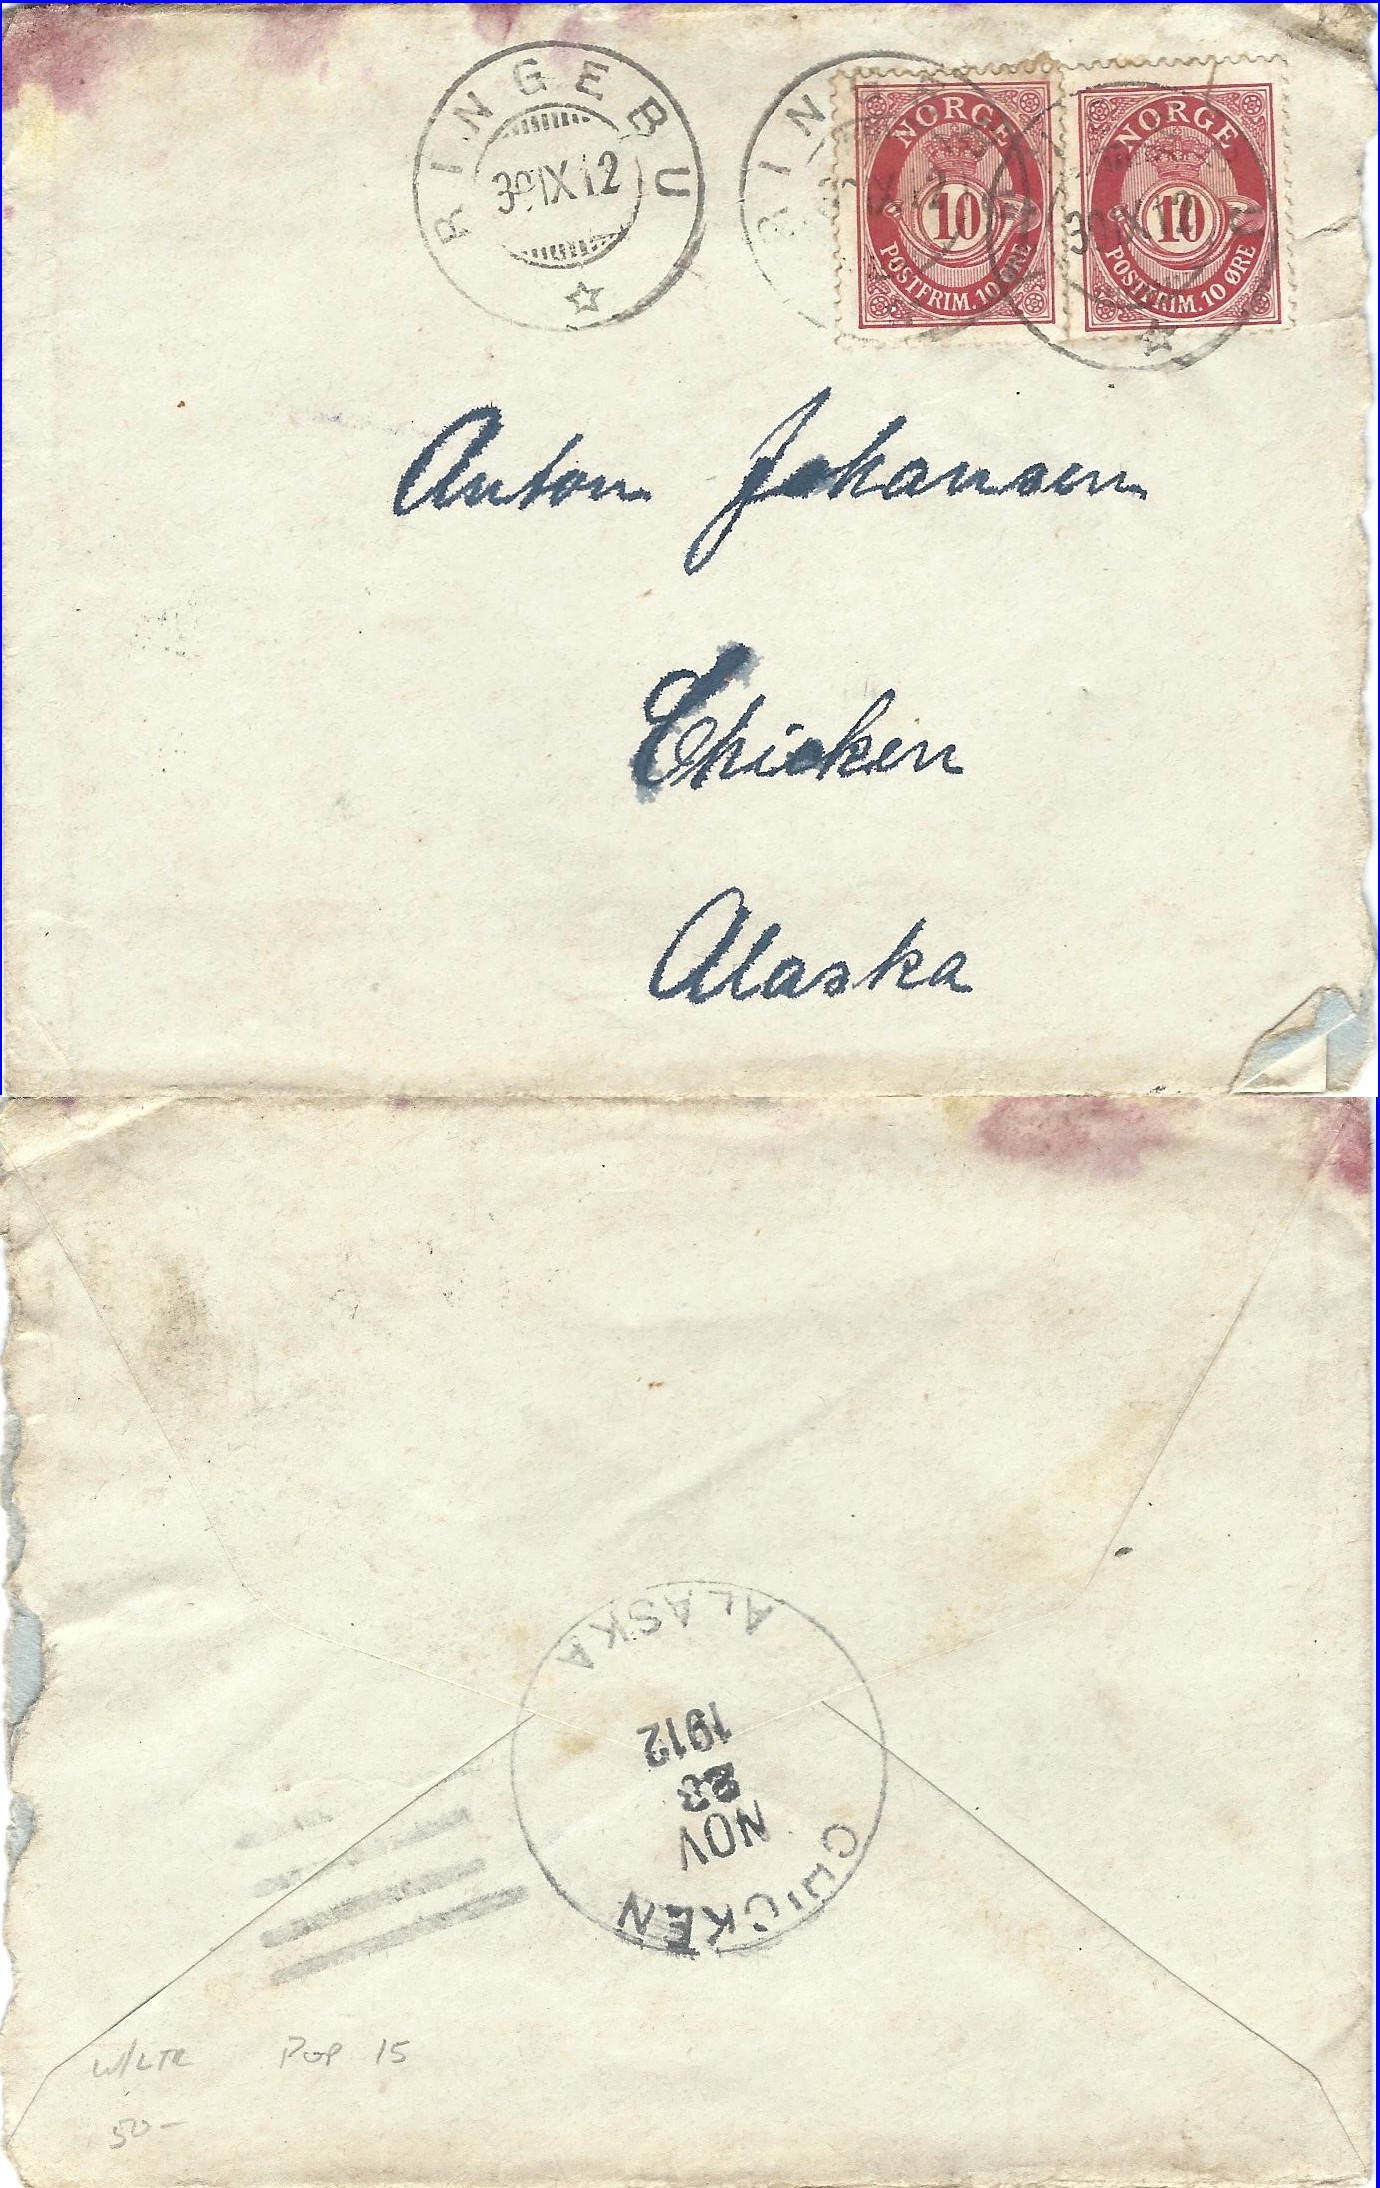 RINGEBU
30 IX 12
NORGE
10
POSTFRIM. 10 ØRE
NORGE
10
POSTFRIM. 10 ØRE
30 IX 12
Anton Johansen
Chicken
Alaska
CHICKEN
NOV
23
1912
ALASKA
W/LTR Pop 15
50-